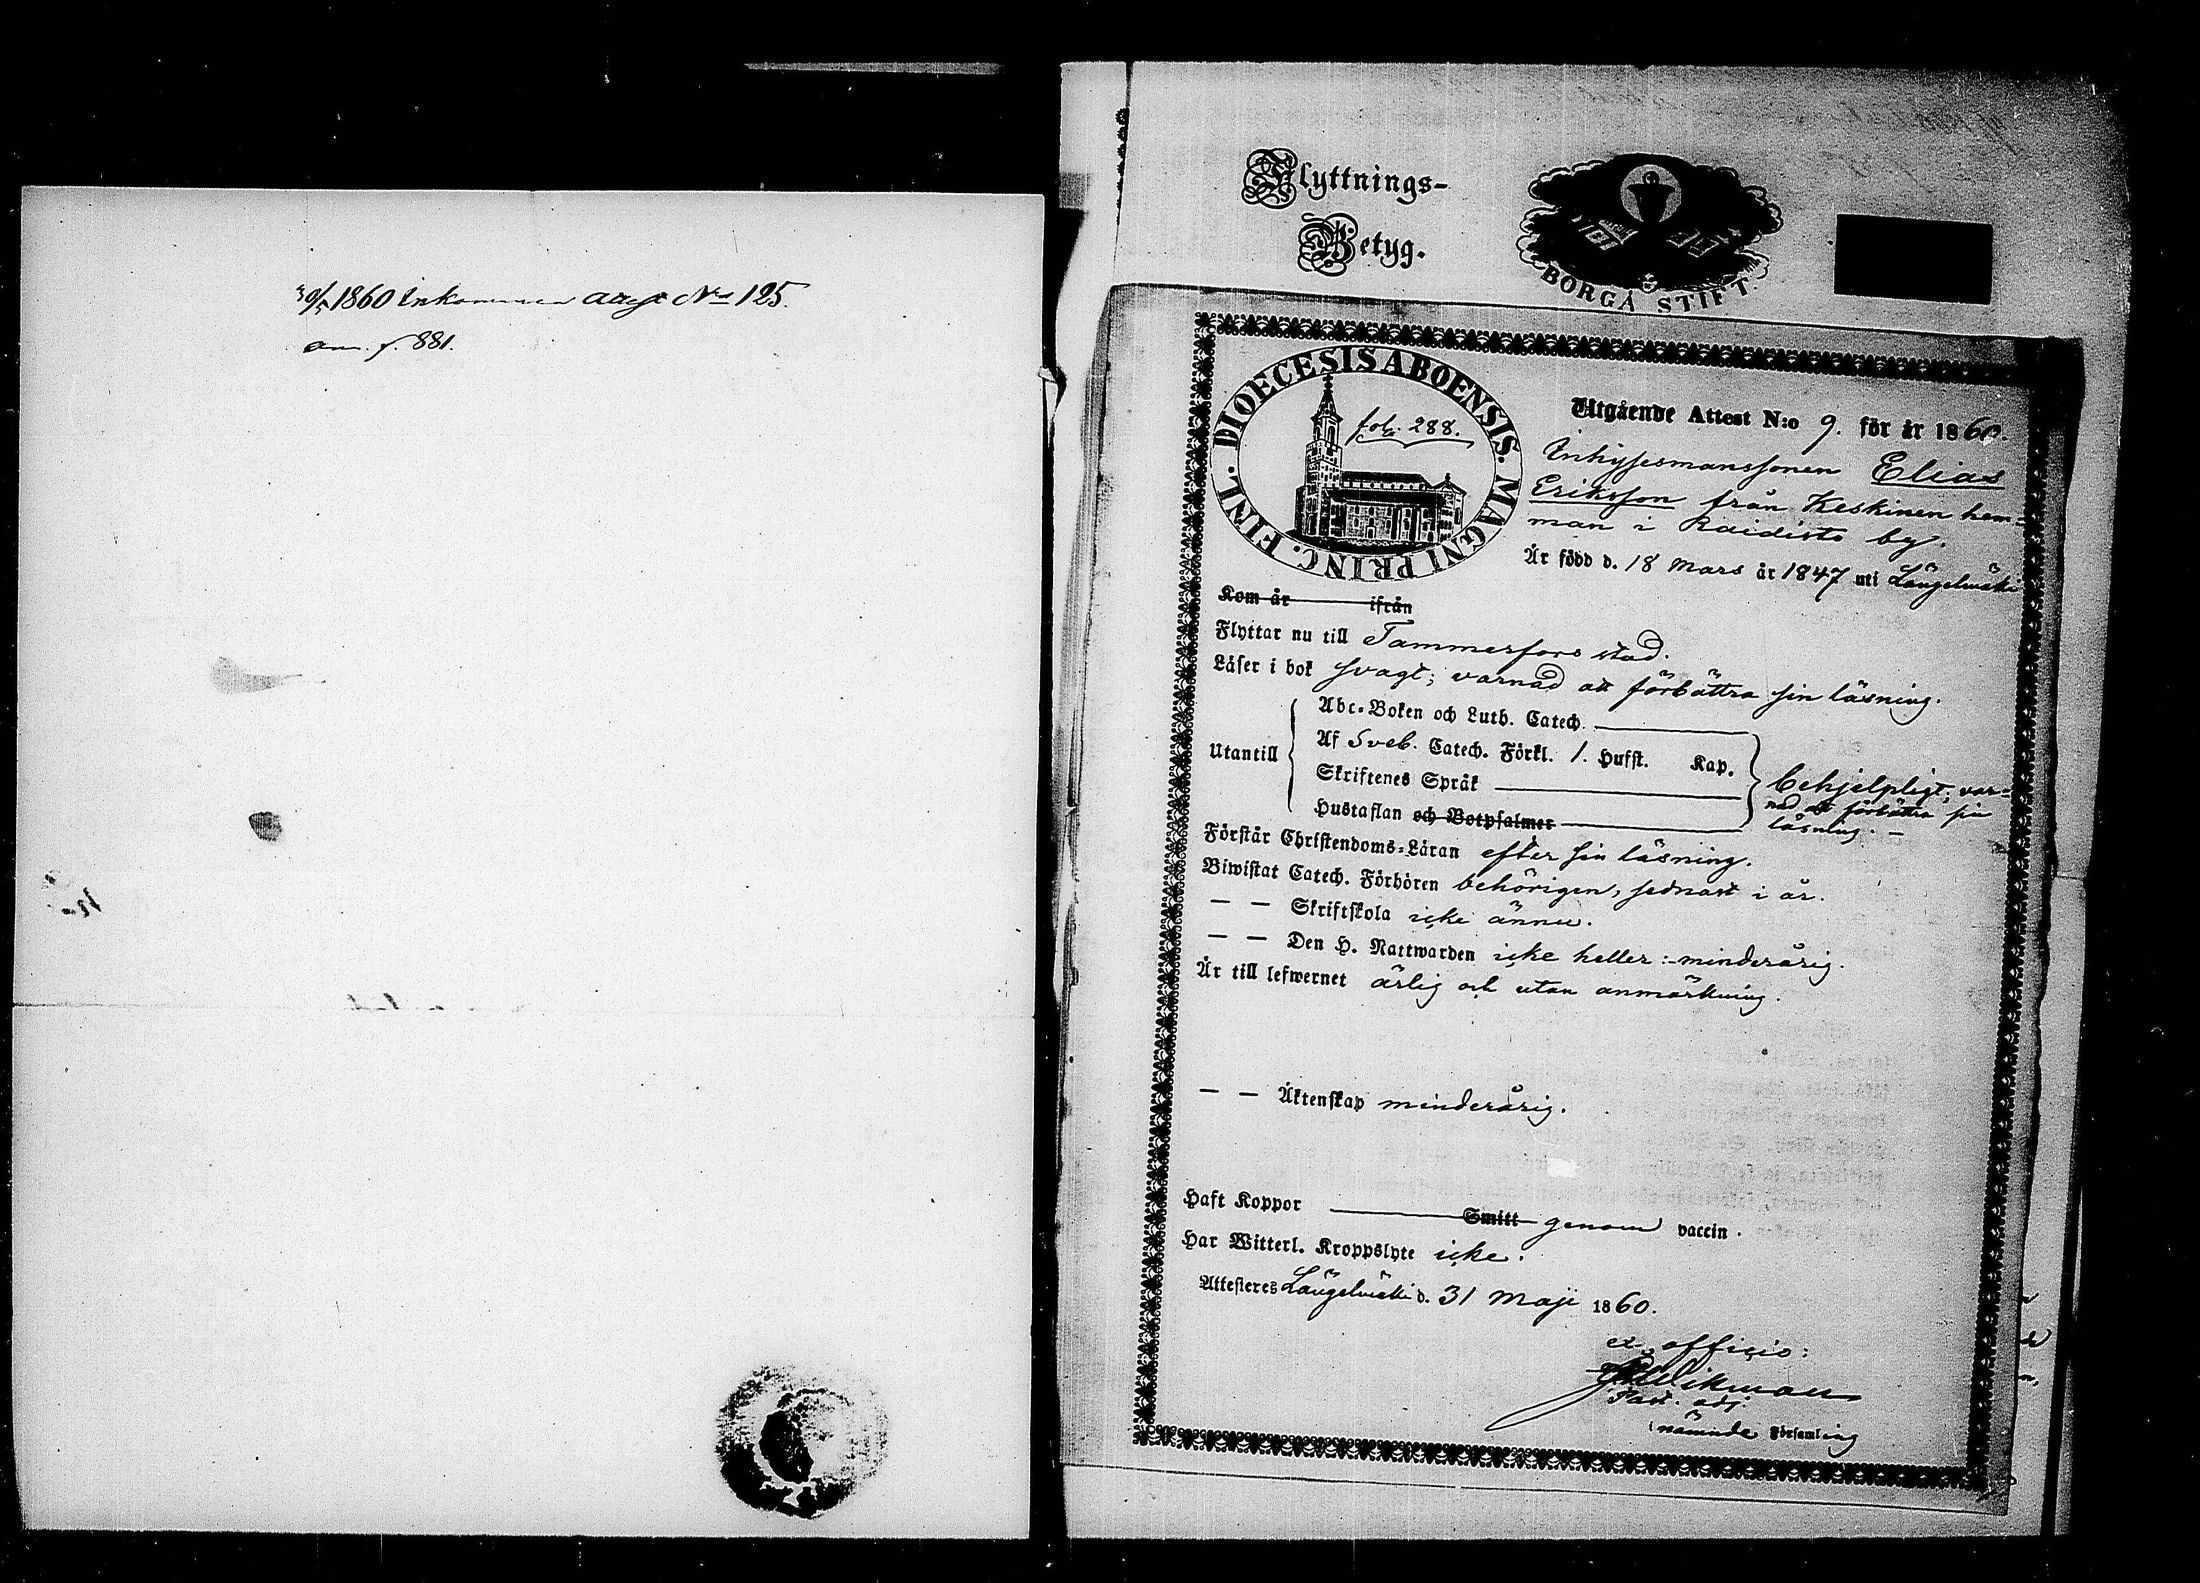 1860 Inkommen attest No 125.
an. f. 881.
Flyttnings-
Betyg.
BORGÅ STIFT.
DIOECESIS ABOENSIS. MAGNI PRINC. FINL.
fol. 288.
Utgående Attest N:o 9. för år 1860.
Inhysesmanssonen Elias
Eriksson från Keskinen hem-
man i Raidisto by.
Är född d. 18 Mars år 1847 uti Längelmäki
Kom år ifrån
Flyttar nu till Tammerfors stad.
Läser i bok svagt; varnad att förbättra sin läsning.
Utantill
Abc-Boken och Luth. Catech.
Af Sveb. Catech. Förkl. 1. Hufst. Kap.
Skriftenes Språk
Hustaflan och Botpsalmer
behjelpligt; var-
nad att förbättra sin
läsning. —
Förstår Christendoms-Läran efter sin läsning.
Biwistat Catech. Förhören behörigen, sednast i år.
— — Skriftskola icke ännu.
— — Den H. Nattwarden icke heller: minderårig.
Är till lefwernet ärlig och utan anmärkning.
— — Äktenskap minderårig.
Haft Koppor Smitt genom vaccin.
Har Witterl. Kroppslyte icke.
Attesteres Längelmäki d. 31 Maji 1860.
ex officio:
Wikman
Past. adj.
i nämnde Församling